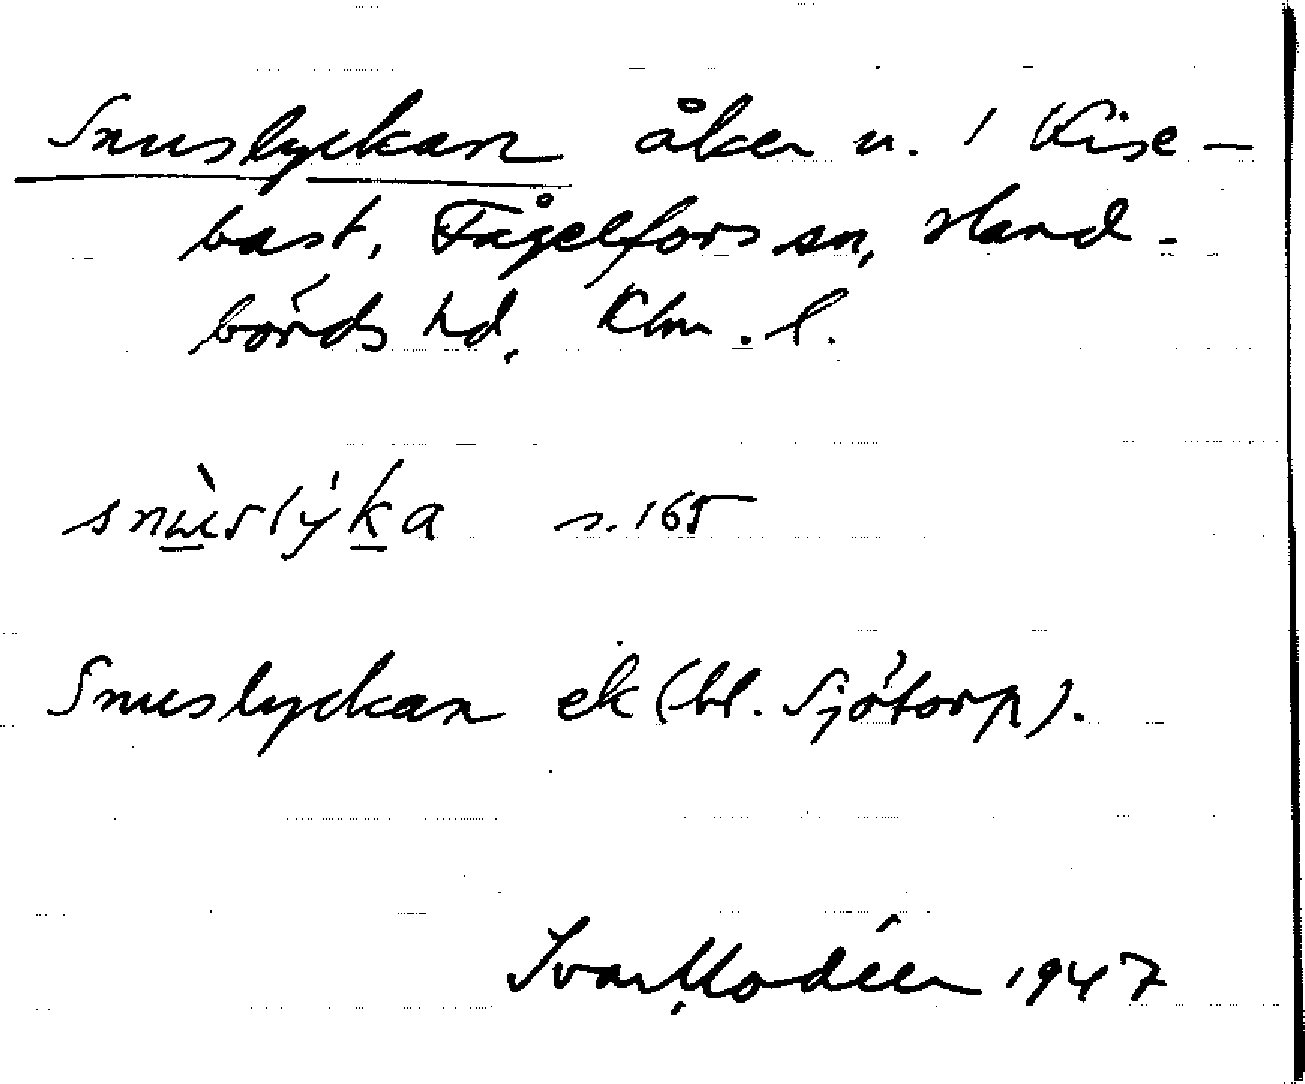 Snuslyckan åker u. 1 Kise-
bast, Fågelfors sn, Hand-
börds hd, Klm. l.
snùslýka s. 165
Snuslyckan ek (bl. Sjötorp).
Ivar Modéer 1947